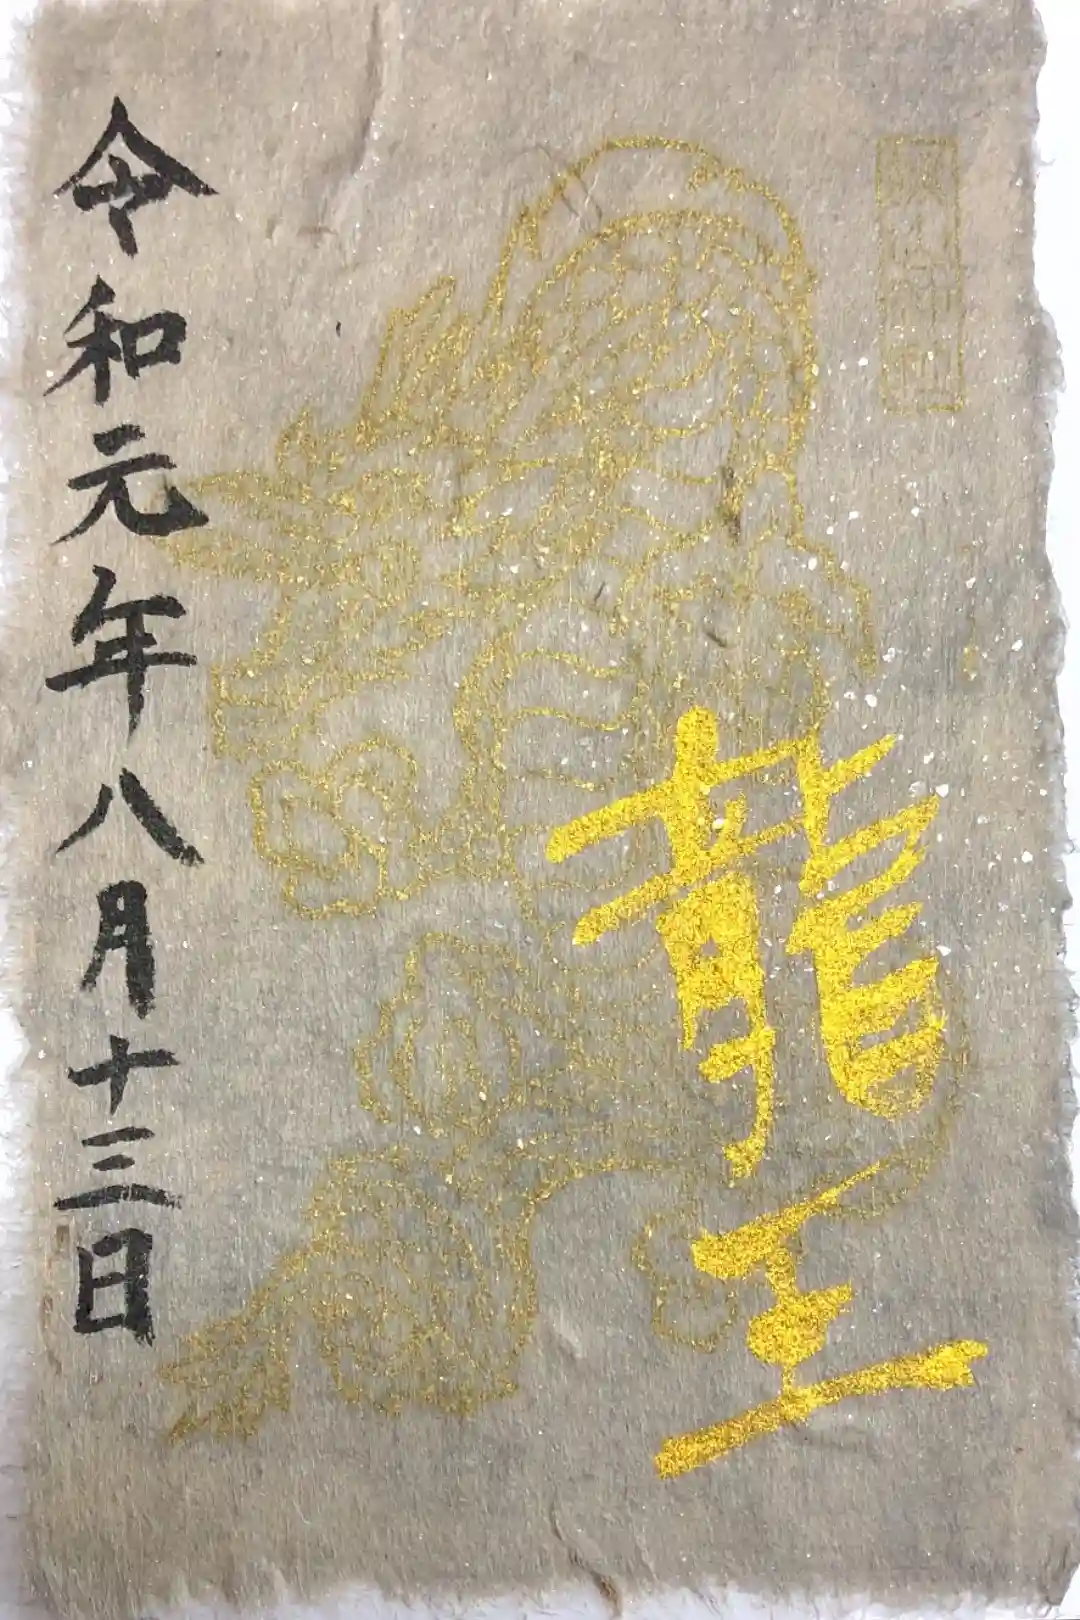 龍王
令和元年八月十三日